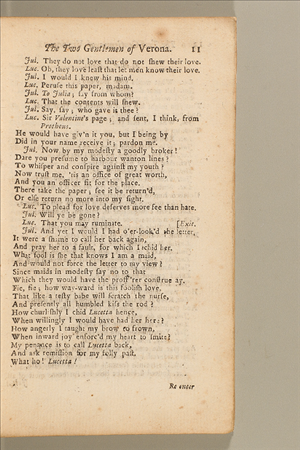 The Two Gentlemen of Verona. 11
Jul. They do not love that do not shew their love.
Luc. Oh, they love least that let men know their love.
Jul. I would I knew his mind.
Luc. Peruse this paper, madam.
Jul. To Julia; say from whom?
Luc. That the contents will shew.
Jul. Say, say; who gave it thee?
Luc. Sir Valentine's page; and sent, I think, from
Protheus.
He would have giv'n it you, but I being by
Did in your name receive it; pardon me.
Jul. Now by my modesty a goodly broker!
Dare you presume to harbour wanton lines?
To whisper and conspire against my youth?
Now trust me, 'tis an office of great worth,
And you an officer fit for the place.
There take the paper; see it be return'd,
Or else return no more into my sight.
Luc. To plead for love deserves more fee than hate.
Jul. Will ye be gone?
Luc. That you may ruminate. [Exit.
Jul. And yet I would I had o'er-look'd the letter,
It were a shame to call her back again,
And pray her to a fault, for which I chid her.
What fool is she that knows I am a maid,
And would not force the letter to my view?
Since maids in modesty say no to that
Which they would have the proff'rer construe ay.
Fie, fie; how way-ward is this foolish love,
That like a testy babe will scratch the nurse,
And presently all humbled kiss the rod?
How churlishly I chid Lucetta hence,
When willingly I would have had her here?
How angerly I taught my brow to frown,
When inward joy enforc'd my heart to smile?
My penance is to call Lucetta back,
And ask remission for my folly past.
What ho! Lucetta!
Re-enter